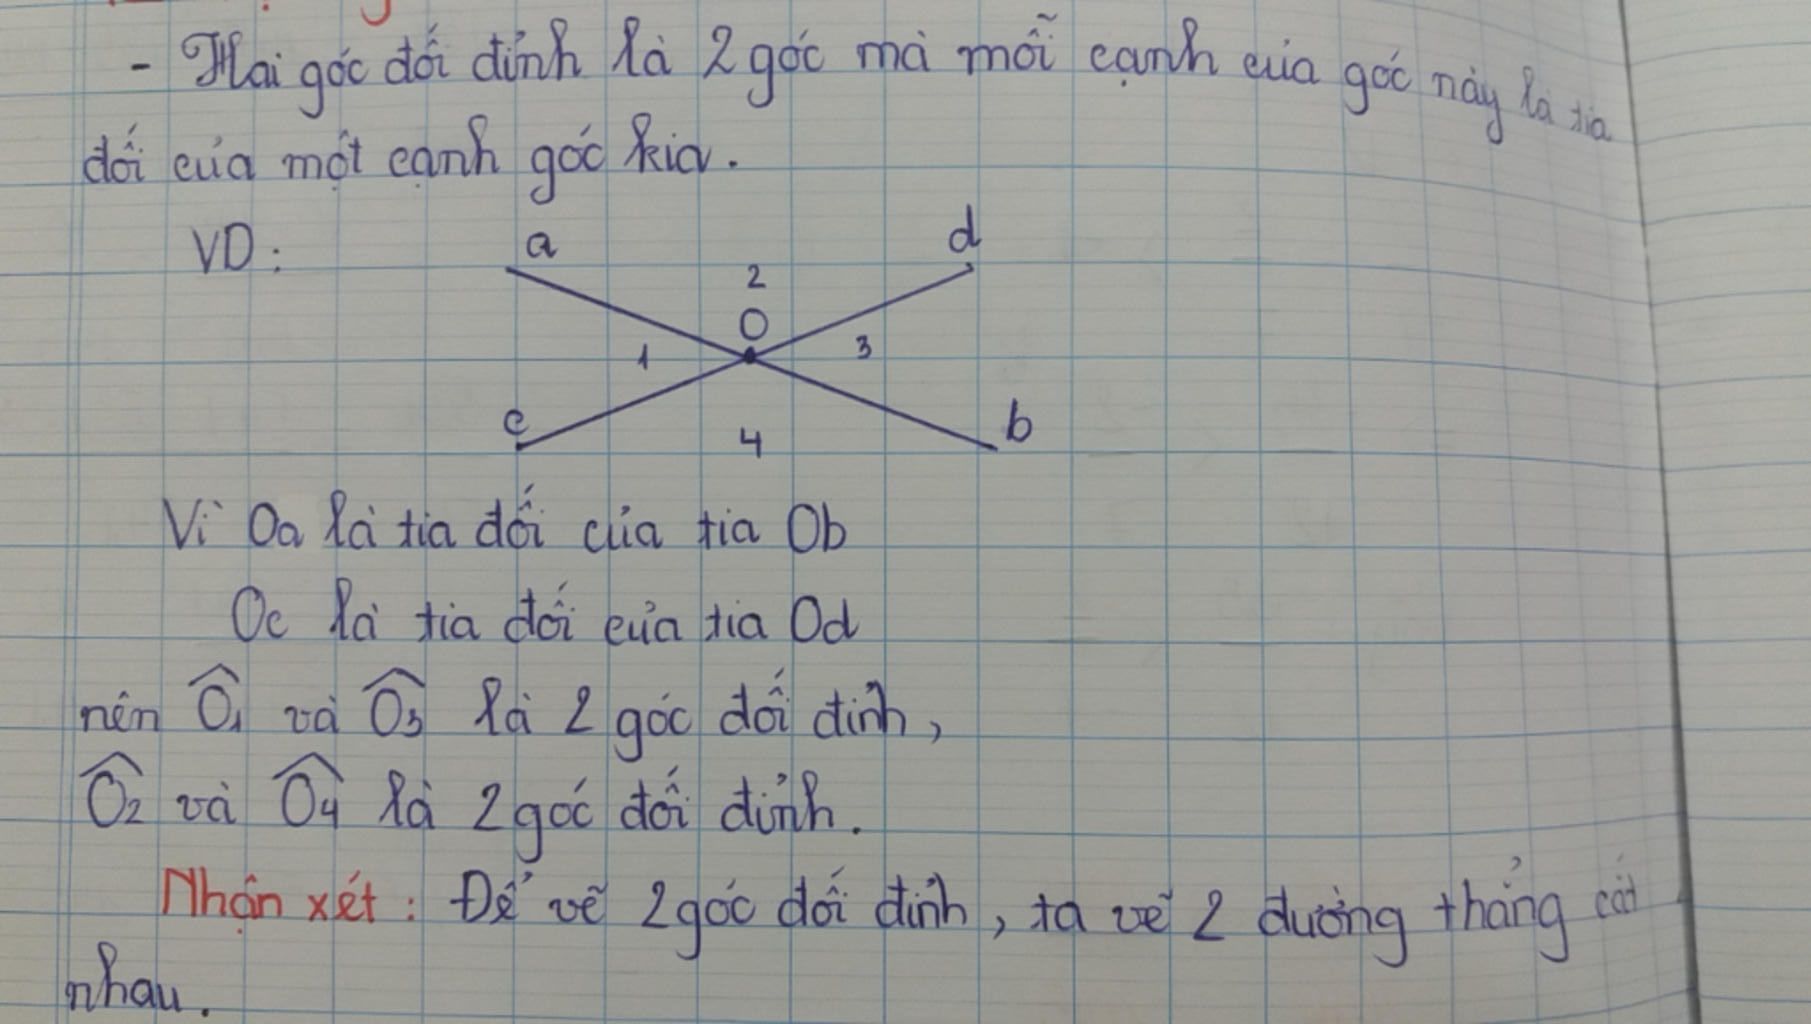 - Hai góc đối đỉnh là 2 góc mà mỗi cạnh của góc này là tia
đối của một cạnh góc kia.
VD:
a d
2
O
1 3
c b
4
Vì Oa là tia đối của tia Ob
Oc là tia đối của tia Od
nên Ô₁ và Ô₃ là 2 góc đối đỉnh,
Ô₂ và Ô₄ là 2 góc đối đỉnh.
Nhận xét: Để vẽ 2 góc đối đỉnh, ta vẽ 2 đường thẳng cắt
nhau.